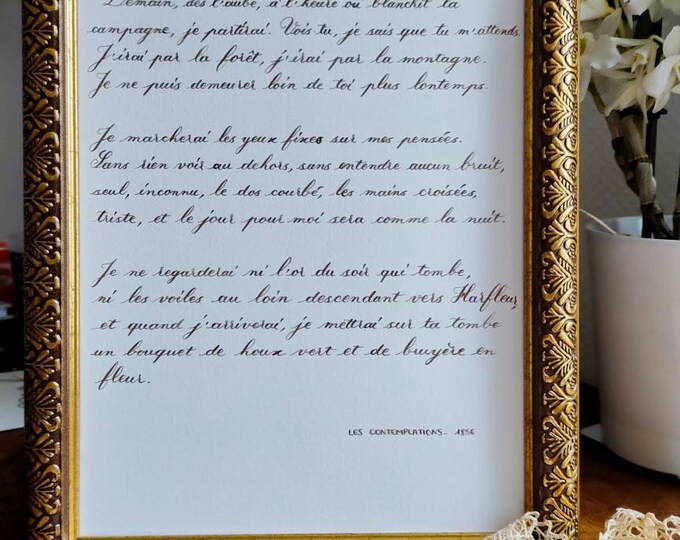 Demain, dès l'aube, à l'heure où blanchit la
campagne, je partirai. Vois tu, je sais que tu m'attends.
J'irai par la forêt, j'irai par la montagne.
Je ne puis demeurer loin de toi plus lontemps.
Je marcherai les yeux fixes sur mes pensées.
Sans rien voir au dehors, sans entendre aucun bruit,
seul, inconnu, le dos courbé, les mains croisées,
triste, et le jour pour moi sera comme la nuit.
Je ne regarderai ni l'or du soir qui tombe,
ni les voiles au loin descendant vers Harfleur,
et quand j'arriverai, je mettrai sur ta tombe
un bouquet de houx vert et de bruyère en
fleur.
LES CONTEMPLATIONS_ 1856